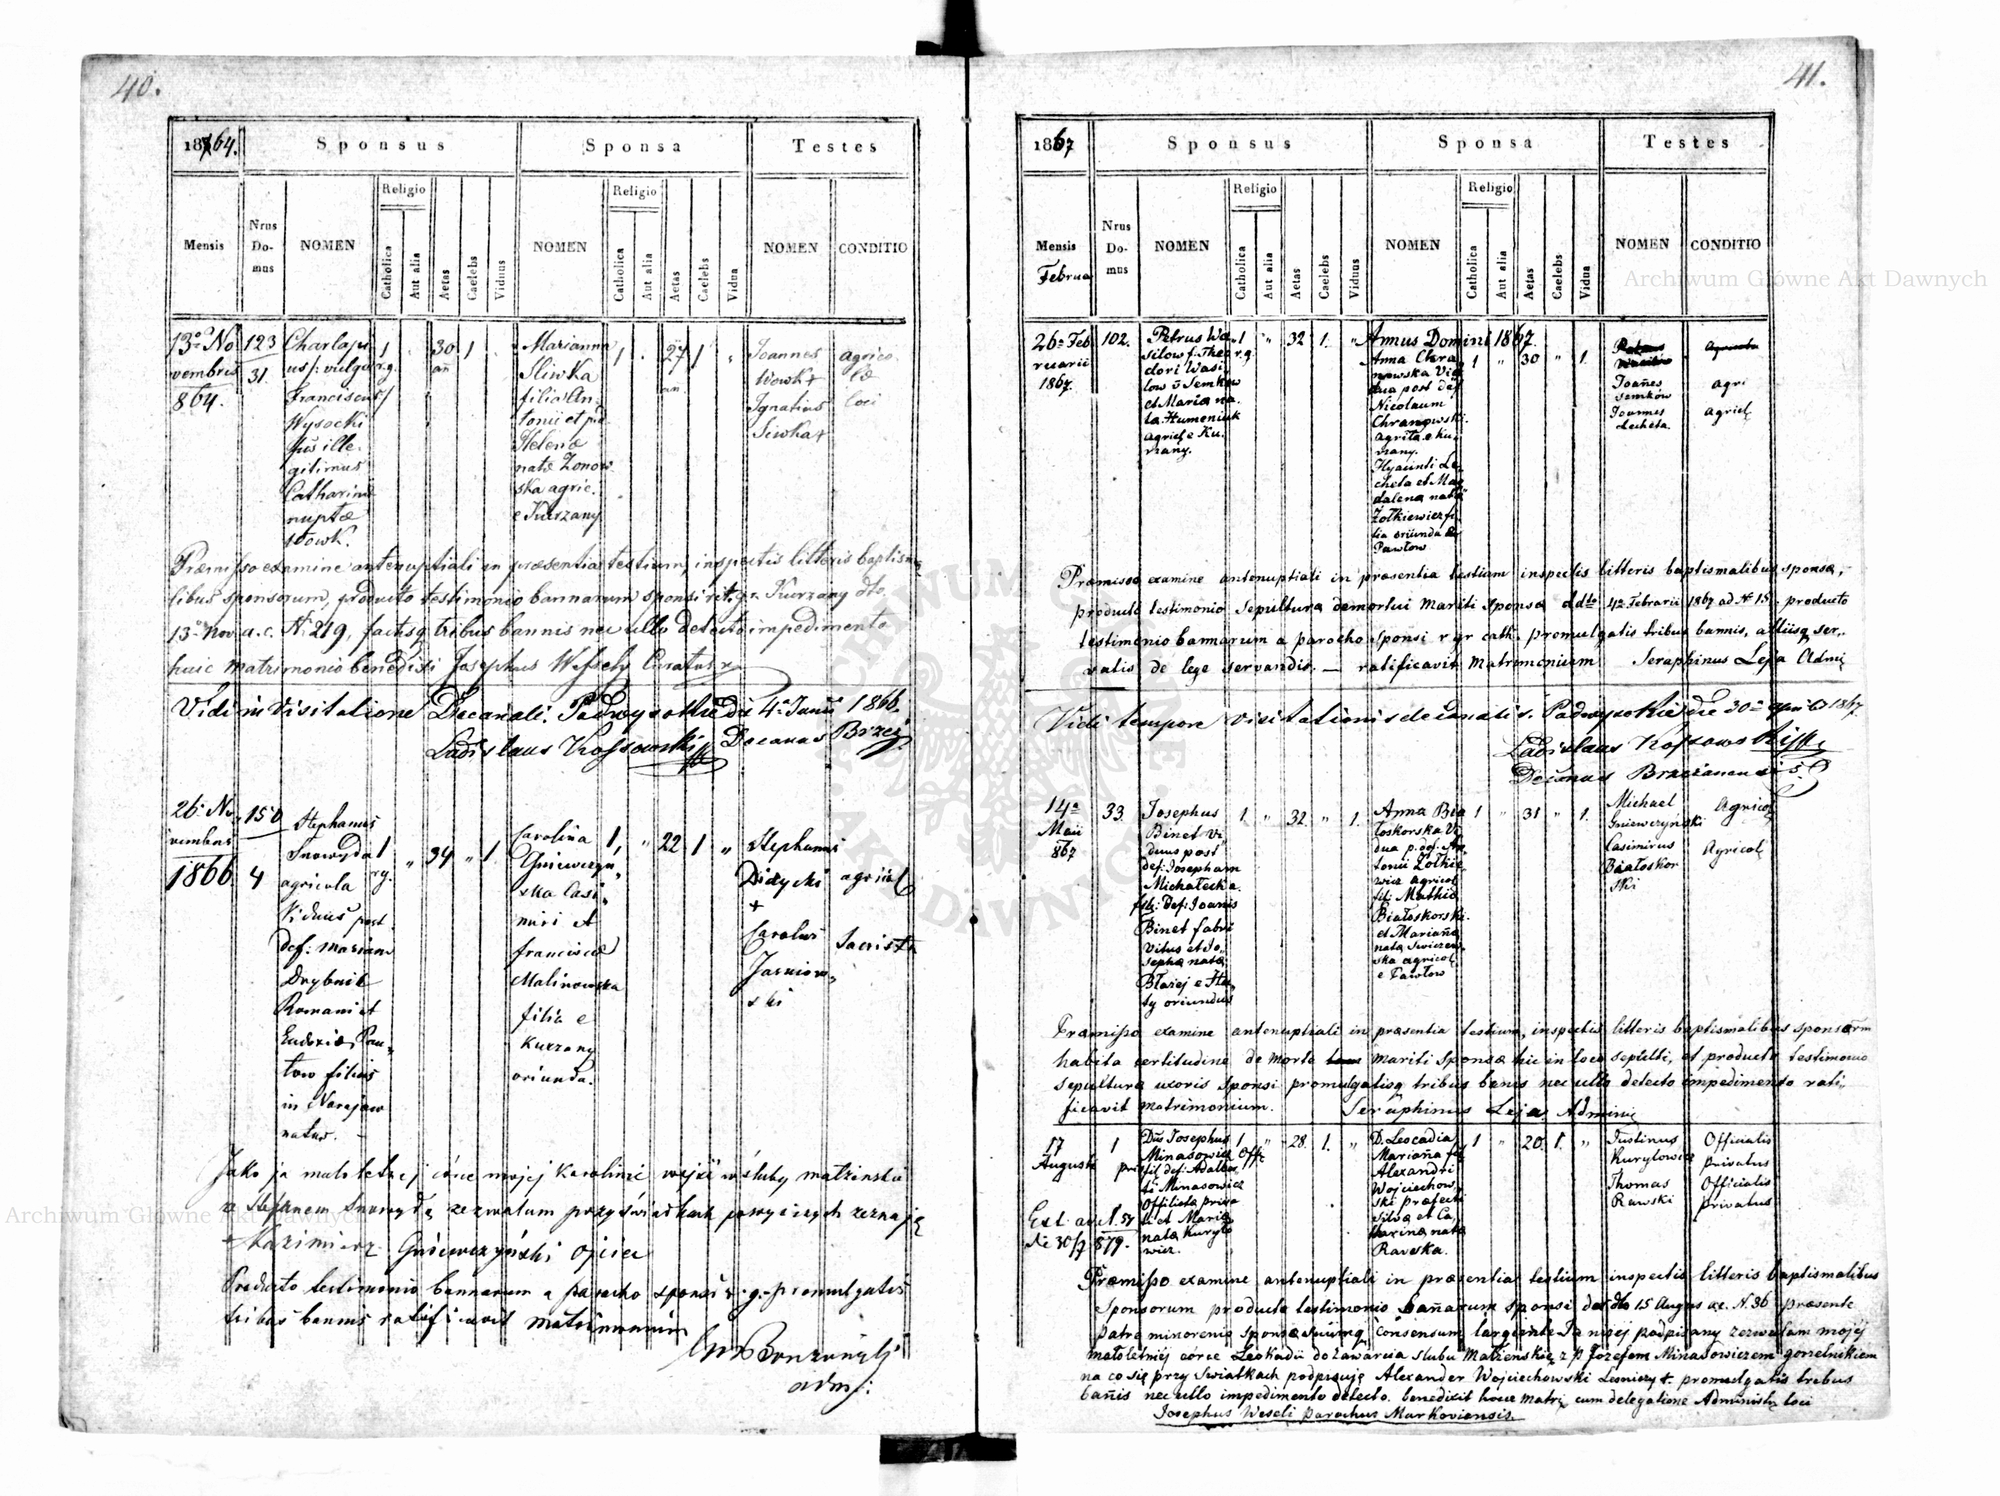 40.
1864.
Sponsus
Sponsa
Testes
Mensis
Nrus Do-mus
NOMEN
Religio
Catholica
Aut alia
Aetas
Caelebs
Viduus
NOMEN
Religio
Catholica
Aut alia
Aetas
Caelebs
Vidua
NOMEN
CONDITIO
13a No
vembris
864.
123
31.
Charlapi
us /: vulgo
Franciscus /
Wysocki
fius ille
gitimus
Catharinæ
nuptæ
Wowk.
1
r.g.
30
an
1
Marianna
Sliwka
filia An
tonii et
Helenæ
natæ Zonow
ska agric.
e Kurzany
1
27
an.
1
"
Joannes
Wowk +
Ignatius
Siwka +
agrico
læ
loci
Præmisso examine antenuptiali in præsentia testium, inspectis litteris baptisma
libus sponsorum, producto testimonio bannorum sponsi rit. gr. Kurzany dto.
13a Nov. a. c. N. 219, factisq tribus bannis nec ullo detecto impedimento
huic matrimonio benedixi Josephus Wessely Curatus
Vidi in Visitatione Decanali. Podwysokie die 4a Junii 1866.
Ladislaus Kossowski Decanus Brzez.
26 No
vembris
1866
150
4
Stephanus
Snowyda
agricola
Viduus post
def: Mariam
Drybnik
Romani et
Eudoxiæ Paw
low filius
in Narajow
natus.
1
rg.
"
34
"
1
Carolina
Gniewczyn
ska Casi
miri et
Franciscæ
Malinowska
filia e
Kurzany
oriunda.
1
"
22
1
"
Stephanus
Didycki
+
Carolus
Jarniow
ski
agricol
Sacrista
Jako ja maloletnej córce mojej Karolinie wejść w śluby małżenskie
z Stefanem Snowydą zezwalam przy świadkach powyższych zeznaję
+ Kazimierz Gniewczyński ojciec
Producto testimonio bannorum a parocho sponsi r. g. promulgatis
tribus bannis ratificavit matrimonium
adm:
41.
1867
Sponsus
Sponsa
Testes
Mensis
Februa
Nrus Do-mus
NOMEN
Religio
Catholica
Aut alia
Aetas
Caelebs
Viduus
NOMEN
Religio
Catholica
Aut alia
Aetas
Caelebs
Vidua
NOMEN
CONDITIO
Annus Domini 1867.
26a Feb
ruarii
1867.
102.
Petrus Wa
silow f. Theo
dori Wasi
low õ Semkow
et Maria na
ta Humeniuk
agricl e Ku
rzany.
1
r.g.
"
32
1.
"
Anna Chra
nowska Vid
dua post def
Nicolaum
Chranowski
agrila e Ku
rzany.
Hyacinti Le
cheta et Mag
dalena nata
Zołkiewicz fi
lia oriunda de
Pawłow
1
"
30
"
1.
Joañes
Semków
Joannes
Lecheta.
agri
agricl
Præmisso examine antenuptiali in præsentia testium inspectis litteris baptismalibus sponsæ,
producto testimonio sepultura demortui mariti sponsæ ddto 4a Februarii 1867 ad N 15. producto
testimonio bannorum a parocho sponsi r gr cath. promulgatis tribus bannis, aliisq ser
vatis de lege servandis. — ratificavit matrimonium Seraphinus Leja Admi
Vidi tempore visitationis decanalis. Podwysokie die 30a aprilis 1867.
Ladislaus Kossowski
Decanus Brzezanensis
14a
Maii
867
33.
Josephus
Binet Vi
duus post
def: Josepham
Michałecka
fili: Def: Joanis
Binet fabri
Vitus et Jo
sepha nata
Błażej e Ha
ty oriundus
1.
"
32.
"
1.
Anna Bia
łoskorska Vi
dua p. def. An
tonii Zołkie
wicz agricol
fili: Mathia
Białoskorski.
et Mariana
nata Swiczew
ska agricol
e Pawłow
1
"
31
"
1.
Michael
Gniewczyński
Casimirus
Białoskor
ski
Agricol
Agricol
Præmisso examine antenuptiali in præsentia testium, inspectis litteris baptismalibus sponsorm
habita certitudine de morte mariti sponsæ hic in loco sepulti, et producto testimonio
sepultura uxoris sponsi promulgatisq tribus banis nec ullo detecto impedimento rati
ficavit matrimonium. Seraphinus Leja Admini
17
Augusti
Ext. ad N. 57
de 30/9 879.
1
Dus Josephus
Minasowicz
fil def: Adalber
ti Minasowicz
Officiala priva
ti et Maria
nata Kuryło
wicz.
1
Off
"
28.
1.
"
D. Leocadia
Mariana fil
Alexandri
Wojciechow
ski præfecti
silvæ et Ca
tharina nata
Raveska.
1
"
20.
1.
"
Justinus
Kuryłowicz
Thomas
Rawski
Officialis
privatus
Officialis
privatus
Præmisso examine antenuptiali in præsentia testium inspectis litteris baptismalibus
sponsorum producto testimonio bañorum sponsi ddto 15 Augus a.c. N. 36 præsente
patre minorenis sponsæ suumq consensum largiente Ja niżej podpisany zezwalam mojéj
małoletniéj córce Leokadii do zawarcia slubu Małżenskie z P Jozefem Minasowiczem gorzelnikiem
na co się przy Swiatkach podpisuję Alexander Wojciechowski Lesniczy +. promulgatis tribus
bañis nec ullo impedimento detecto. benedixit huic matri cum delegatione Administr loci
Josephus Weseli parochus Markoviensis.
Archiwum Główne Akt Dawnych
Archiwum Główne Akt Dawnych
ARCHIWUM GŁÓWNE AKT DAWNYCH